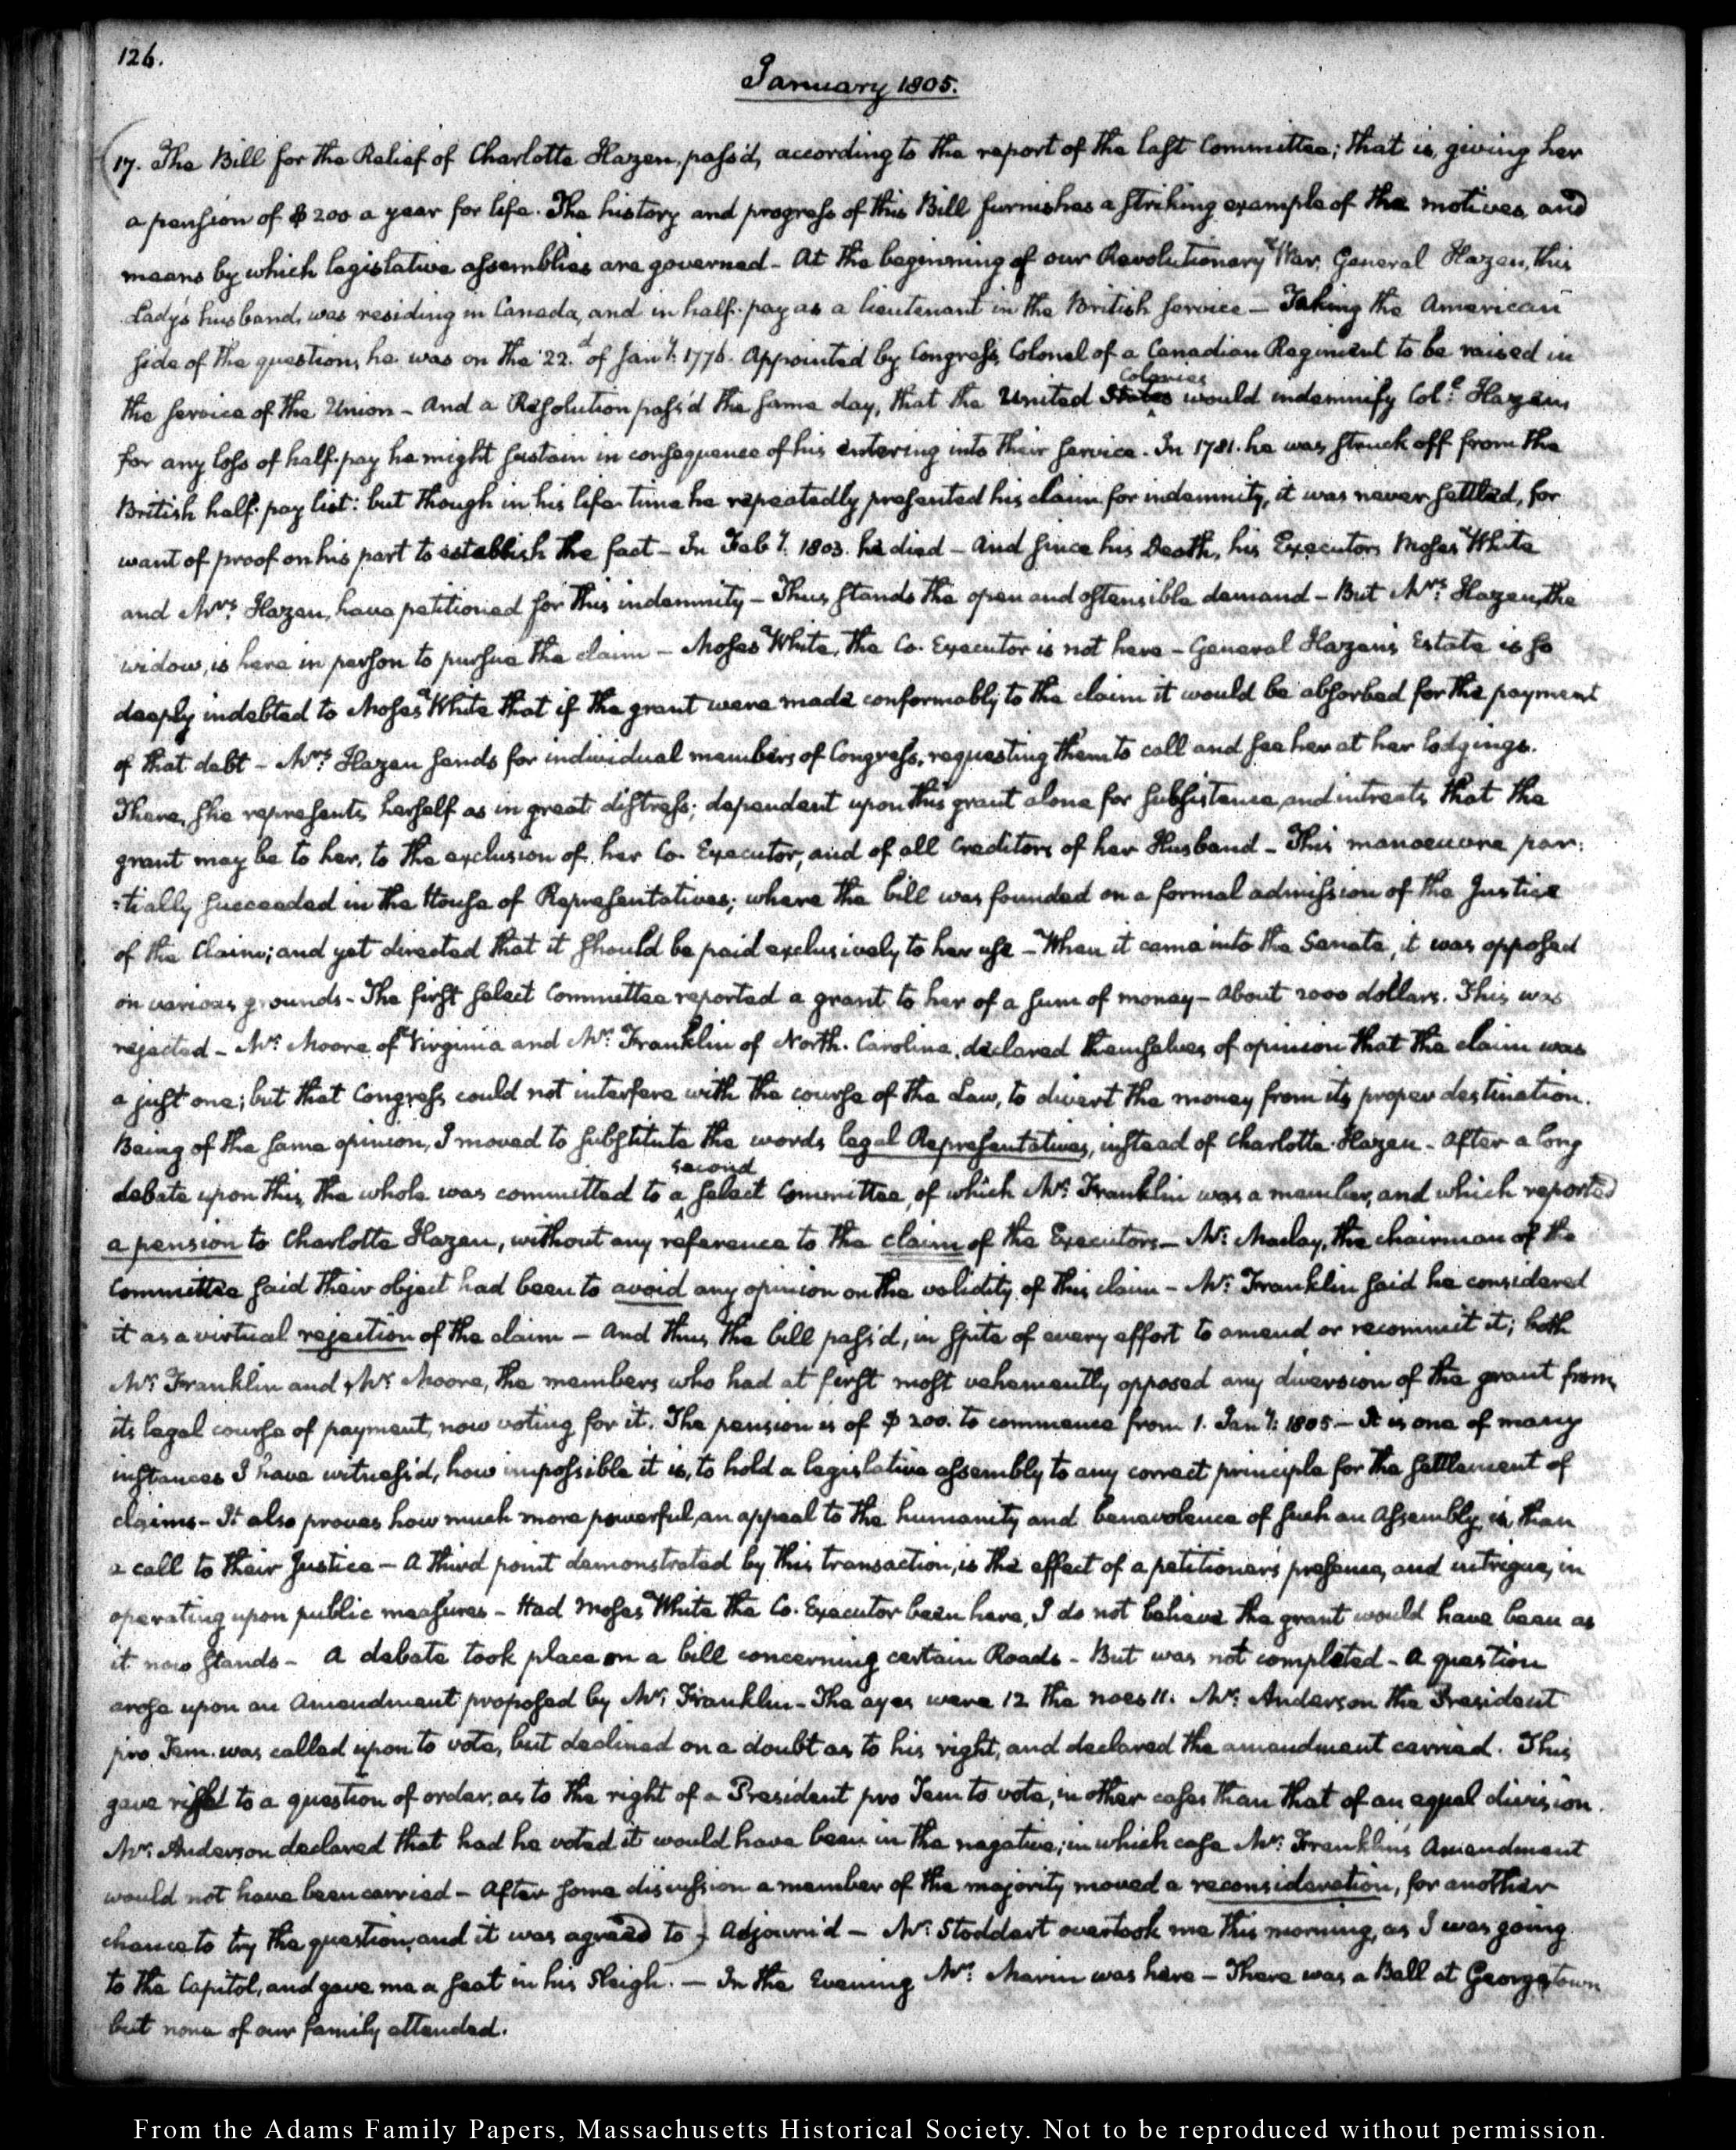 126.
January 1805.
17. The Bill for the Relief of Charlotte Hazen, pass'd, according to the report of the last Committee; that is, giving her
a pension of $200 a year for life. The history and progress of this Bill furnishes a striking example of the motives, and
means by which legislative assemblies are governed - At the beginning of our Revolutionary War, General Hazen, this
Lady's husband, was residing in Canada, and in half-pay as a lieutenant in the British service - Taking the American
side of the question, he was on the 22.d of Jany: 1776. Appointed by Congress, Colonel of a Canadian Regiment to be raised in
the service of the Union - And a Resolution pass'd the same day, that the United States Colonies would indemnify Col.l Hazen,
for any loss of half-pay he might sustain in consequence of his entering into their service. In 1781. he was struck off from the
British half-pay list: but though in his life-time he repeatedly presented his claim for indemnity, it was never settled, for
want of proof on his part to establish the fact - In Feby: 1803. he died - And since his Death, his Executors Moses White
and Mrs: Hazen, have petitioned for this indemnity - Thus stands the open and ostensible demand - But Mrs: Hazen, the
widow, is here in person to pursue the claim - Moses White, the Co-Executor is not here - General Hazen's Estate is so
deeply indebted to Moses White that if the grant were made conformably to the claim it would be absorbed for the payment
of that debt - Mrs: Hazen sends for individual members of Congress, requesting them to call and see her at her lodgings.
There, she represents herself as in great distress; dependent upon this grant alone for subsistence, and intreats that the
grant may be to her, to the exclusion of her Co-Executor, and of all Creditors of her Husband - This manoeuvre par:
:tially succeeded in the House of Representatives; where the bill was founded on a formal admission of the Justice
of the Claim; and yet directed that it should be paid exclusively to her use - When it came into the Senate, it was opposed
on various grounds - The first select Committee reported a grant to her of a sum of money - About 2000 dollars. This was
rejected - Mr: Moore of Virginia and Mr: Franklin of North-Carolina, declared themselves of opinion that the claim was
a just one; but that Congress could not interfere with the course of the Law, to divert the money from its proper destination.
Being of the same opinion, I moved to substitute the words legal Representatives, instead of Charlotte Hazen - After a long
debate upon this, the whole was committed to a second select Committee, of which Mr: Franklin was a member, and which reported
a pension to Charlotte Hazen, without any reference to the claim of the Executors - Mr: Maclay, the chairman of the
Committee said their object had been to avoid any opinion on the validity of this claim - Mr: Franklin said he considered
it as a virtual rejection of the claim - And thus, the bill pass'd, in spite of every effort to amend or recommit it; both
Mr: Franklin and Mr: Moore, the members who had at first most vehemently opposed any diversion of the grant from
its legal course of payment, now voting for it. The pension is of $200. to commence from 1. Jany: 1805 - It is one of many
instances I have witness'd, how impossible it is, to hold a legislative assembly to any correct principle for the settlement of
claims - It also proves how much more powerful, an appeal to the humanity and benevolence of such an Assembly, is, than
a call to their Justice - A third point demonstrated by this transaction, is the effect of a petitioner's presence, and intrigue, in
operating upon public measures - Had Moses White the Co-Executor been here, I do not believe the grant would have been as
it now stands - A debate took place on a bill concerning certain Roads - But was not completed - A question
arose upon an Amendment proposed by Mr: Franklin - The ayes were 12 the noes 11. Mr: Anderson the President
pro Tem. was called upon to vote, but declined on a doubt as to his right, and declared the amendment carried. This
gave rise to a question of order, as to the right of a President pro Tem to vote, in other cases than that of an equal division.
Mr: Anderson declared that had he voted it would have been in the negative; in which case Mr: Franklin's Amendment
would not have been carried - After some discussion a member of the majority moved a reconsideration, for another
chance to try the question, and it was agreed to) Adjourn'd - Mr: Stoddart overtook me this morning, as I was going
to the Capitol, and gave me a seat in his Sleigh. - In the Evening Mr: Marin was here - There was a Ball at Georgetown
but none of our family attended.
From the Adams Family Papers, Massachusetts Historical Society. Not to be reproduced without permission.